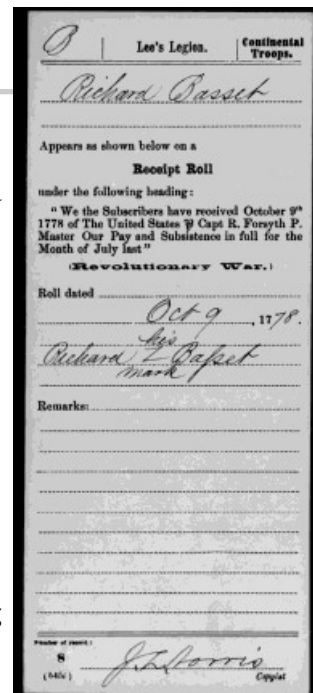 B
Lee's Legion.
Continental
Troops.
Richard Basset
Appears as shown below on a
Receipt Roll
under the following heading:
"We the Subscribers have received October 9th
1778 of The United States ⅌ Capt R. Forsyth P.
Master Our Pay and Subsistence in full for the
Month of July last"
(Revolutionary War.)
Roll dated
Oct 9, 1778.
his
Richard Baſset
mark
Remarks:
Number of record:
8
Copyist